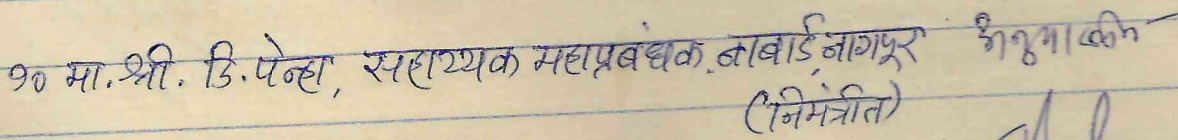 १० मा. श्री. डि. पेन्हा, सहाय्यक महाप्रबंधक, नाबार्ड, नागपूर
(निमंत्रीत)